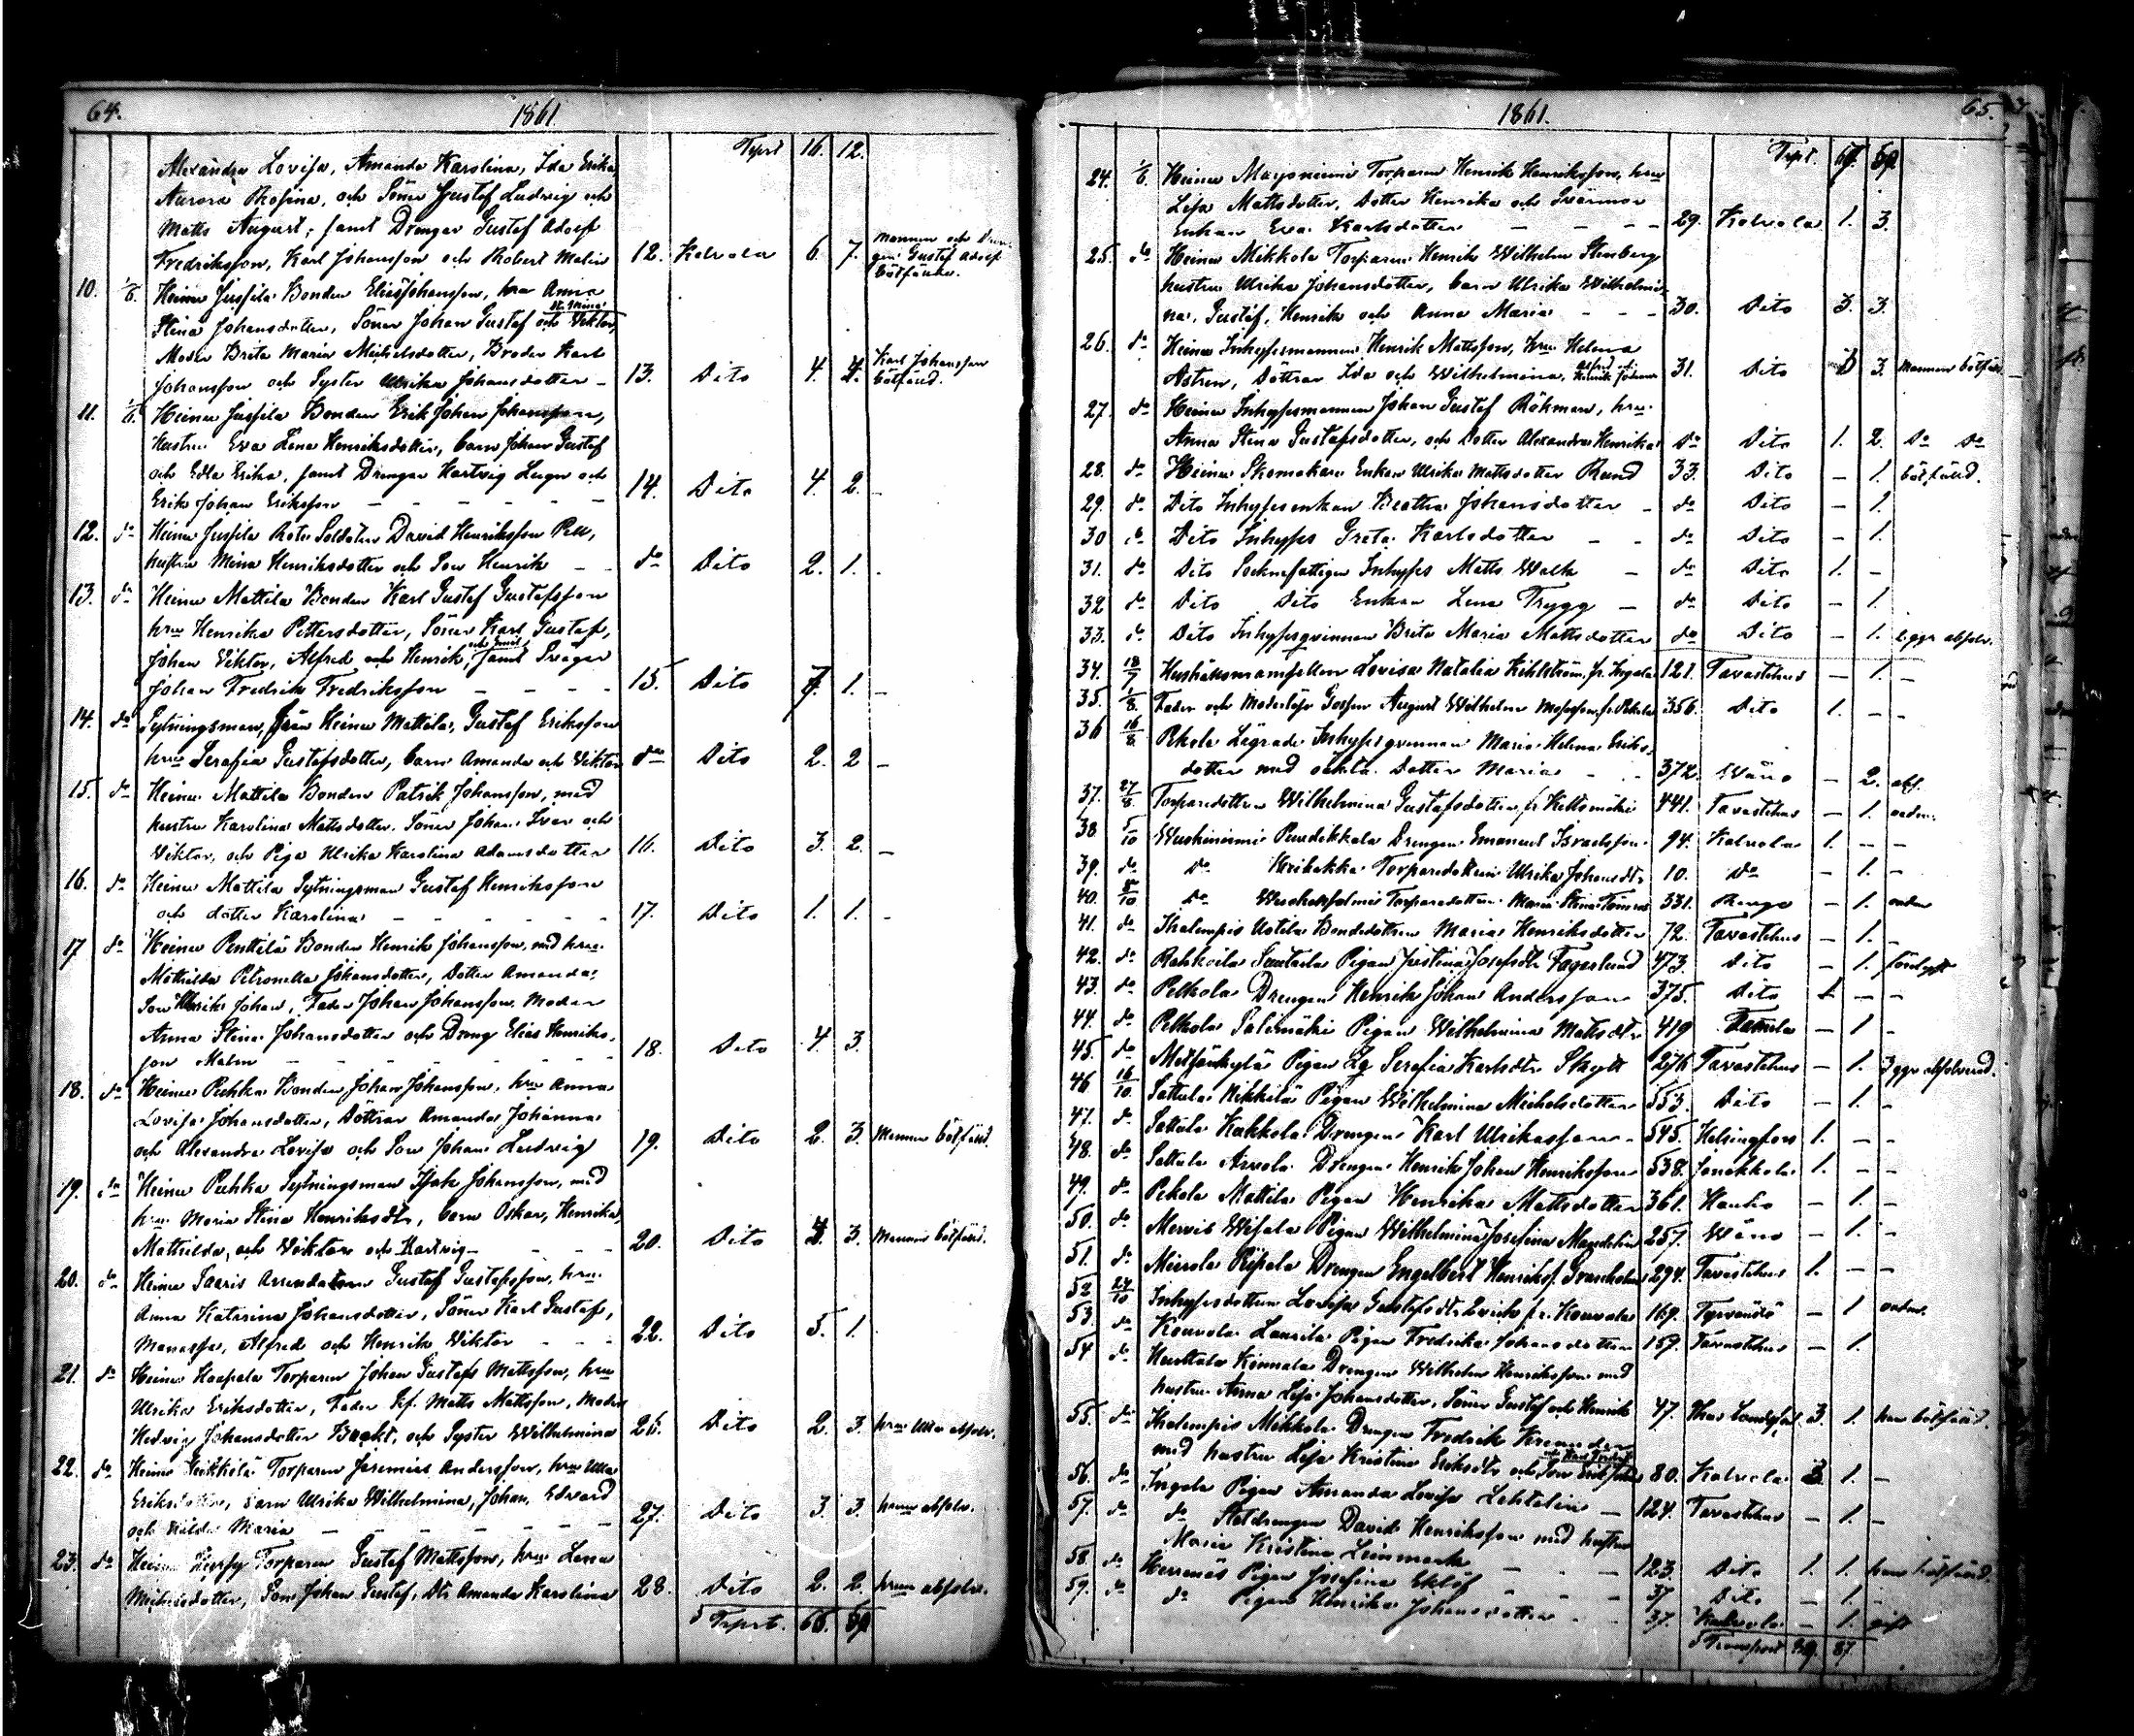 64.
1861.
Tprt 16. 12.
Alexandra Lovisa, Amanda Karolina, Ida Erika
Aurora Rosina, och Söner Gustaf Ludvig och
Matts August; samt Drengar Gustaf Adolf
Fredriksson, Karl Johansson och Robert Malin 12. Kalvola 6. 7. mannen och Dren-
gen Gustaf Adolf
bötfäude.
10. 1/6. Heinu Jussila Bonden Elias Johansson, hru Anna
Stina Johansdotter, Söner Johan Gustaf och Viktor,
Moder Brita Maria Michelsdotter, Broder Karl
Johansson och Syster Ulrika Johansdotter - 13. Dito 4. 4. Karl Johansson
bötfäud.
11. 1/6. Heinu Jussila Bonden Erik Johan Johansson,
hustru Eva Lena Henriksdotter, barn Johan Gustaf
och Edla Erika, samt Drengar Hartvig och
Erik Johan Eriksson - - - - - 14. Dito 4. 2. -
12. do Heinu Jussila Rote Soldaten David Henriksson
hustru Mina Henriksdotter och Son Henrik - - do Dito 2. 1. -
13. do Heinu Mattila Bonden Karl Gustaf Gustafsson
hru Henrika Pettersdotter, Söner Karl Gustaf,
Johan Viktor, Alfred och Henrik, och Emil, samt
Johan Fredrik Fredriksson - - - - 15. Dito 7. 1. -
14. do Sytningsman från Heinu Mattila, Gustaf Eriksson
hru Serafia Gustafsdotter, barn Amanda och Viktor do Dito 2. 2 -
15. do Heinu Mattila Bonden Patrik Johansson, med
hustru Karolina Mattsdotter, Söner Johan Ivar och
Viktor, och Piga Ulrika Karolina Adamsdotter 16. Dito 3. 2. -
16. do Heinu Mattila Sytningsman Gustaf Henriksson
och dotter Karolina - - - - - 17. Dito 1. 1. -
17 do Heinu Penttilä Bonden Henrik Johansson, med hru
Mathilda Petronella Johansdotter, Dotter Amanda
Son Henrik Johan, Fader Johan Johansson, Moder
Anna Stina Johansdotter och Dreng Elias Henriks-
son Malm - - - - - 18. Dito 4. 3.
18. do Heinu Puhka Bonden Johan Johansson, hru Anna
Lovisa Johansdotter, Döttrar Amanda Johanna
och Alexandra Lovisa och Son Johan Ludvig 19. Dito 2. 3. Mannen bötfäud.
19. do Heinu Puhka Sytningsman Isak Johansson, med
hru Maria Stina Henriksdr, barn Oskar, Henrika,
Mathilda, och Viktor och Hartvig - - - 20. Dito 4. 3. Mannen bötfäud.
20. do Heinu Saaris Arrendatorn Gustaf Gustafsson, hru
Anna Katarina Johansdotter, Söner Karl Gustaf,
Manasse, Alfred och Henrik Viktor - - - 22. Dito 5. 1.
21. do Heinu Haapala Torparen Johan Gustaf Mattsson, hru
Ulrika Eriksdotter, Fader Matts Mattsson, Moder
Hedvig Johansdotter och Syster Wilhelmina 26. Dito 2. 3. hru Ulla absolv.
22. do Heinu Torparen Jeremias Andersson, hru Ulla
Eriksdotter, barn Ulrika Wilhelmina, Johan Edvard
och Hilda Maria - - - - - 27. Dito 3. 3. hrun absolv.
23. do Heinu Torparen Gustaf Mattsson, hru Lena
Michelsdotter, Son Johan Gustaf, dtr Amanda Karolina 28. Dito 2. 2. hrun absolv.
Tprt. 65. 52
1861.
65.
Tprt.
24. 1/6. Heinu Torparen Henrik Henriksson, hru
Lisa Mattsdotter, Dotter Henrika och Svärmor
Enkan Eva Karlsdotter - - - - 29. Kalvola 1. 3.
25. do Heinu Mikkola Torparen Henrik Wilhelm Stenberg
hustru Ulrika Johansdotter, barn Ulrika Wilhelmi-
na, Gustaf, Henrik och Anna Maria - - - 30. Dito 3. 3.
26. do Heinu Inhysesmannen Henrik Mattsson, hru Helena
Astren, Döttrar Ida och Wilhelmina, 31. Dito 3. Mannen bötfäud.
27. do Heinu Inhysesmannen Johan Gustaf Rökman, hru
Anna Stina Gustafsdotter, och Dotter Alexandra Henrika do Dito 1. 2. do do
28. do Heinu Skomakare Enkan Ulrika Mattsdotter Rund 33. Dito - 1. bötfäud.
29. do Dito Inhysesenkan Beatha Johansdotter - do Dito - 1.
30 do Dito Inhyses Greta Karlsdotter - - do Dito - 1.
31. do Dito Socknefattigen Inhyses Matts Walk - do Dito 1. -
32 do Dito Dito Enkan Lena Trygg - do Dito - 1.
33. do Dito Inhysesqvinnan Brita Maria Mattsdotter do Dito - 1. 2 ggr absolv.
34. 18/7 Hushållsmamsellen Lovisa Natalia Kihlström, fr. Ingala 121. Tavastehus - 1. -
35. 1/8. Fader och Moderlöse Gossen August Wilhelm Mosesson, fr. Pekola 356. Dito 1. - -
36 16/8 Pekola Lägrade Inhysesqvinnan Maria Helena Eriks-
dotter med oäkta Dotter Maria - - - 372. Wåno - 2. abs.
37. 27/8. Torparedottren Wilhelmina Gustafsdotter, fr. 441. Tavastehus - 1.
38 5/10 Wuohiniemi Drengen Emanuel Israelsson 94. Kalvola 1. - -
39. do do Torparedottren Ulrika Johansdtr 10. do - 1. -
40. 8/10 do Torparedottren Maria Stina 331. Rengo - 1.
41. do Ihalempis Uotila Bondedottren Maria Henriksdotter 72. Tavastehus - 1. -
42. do Rahkoila Pigan Justina Josefsdtr Fagerlund 473. Dito - 1.
43. do Pelkola Drengen Henrik Johan Andersson 375. Dito 1 - -
44. do Pelkola Salimäki Pigan Wilhelmina Mattsdtr 419 - 1 -
45. do Metsänkylä Pigan Serafia Karlsdtr 276 Tavastehus - 1. 3 ggr absolverad.
46 16/10. Sattula Nikkilä Pigan Wilhelmina Michelsdotter 553. Dito - 1. -
47. do Sattula Kakkola Drengen Karl Ulrikasson - 545. Helsingfors 1. - -
48. do Sattula Arvola Drengen Henrik Johan Henriksson 538. Janakkala 1. - -
49. do Pekola Mattila Pigan Henrika Mattsdotter 361. Hauho - 1. -
50. do Mervis Pigan Wilhelmina Josefina Mandelin 257. Wåno - 1. -
51. do Mierola Piipola Drengen Engelbert Henriksson Granholm 294. Tavastehus 1. - -
52 27/10 Inhysesdottren Lovisa Gustafsdtr fr. Kouvala 169. Tyrvändö - 1
53. do Kouvola Laurila Pigan Fredrika Johansdotter 159. Tavastehus - 1.
54 do Hurttala Drengen Wilhelm Henriksson med
hustru Anna Lisa Johansdotter, Söner Gustaf och Henrik 47. 3. 1. han bötfäud.
55. do Ihalempis Mikkola Drengen Fredrik
med hustru Lisa Kristina Eriksdtr och Son Erik Johan 80. Kalvola 3. 1. -
56. do Ingala Pigan Amanda Lovisa Lehtelin - 124. Tavastehus - 1. -
57. do do Statdrengen David Henriksson med hustru
Maria Kristina Leinmark - - - 123. Dito 1. 1. han bötfäud.
58. do Herrenäs Pigan Josefina Eklöf - - - 37 Dito - 1. -
59. do do Pigan Henrika Johansdotter - - 37. Kalvola - 1. gift
Transport 87.